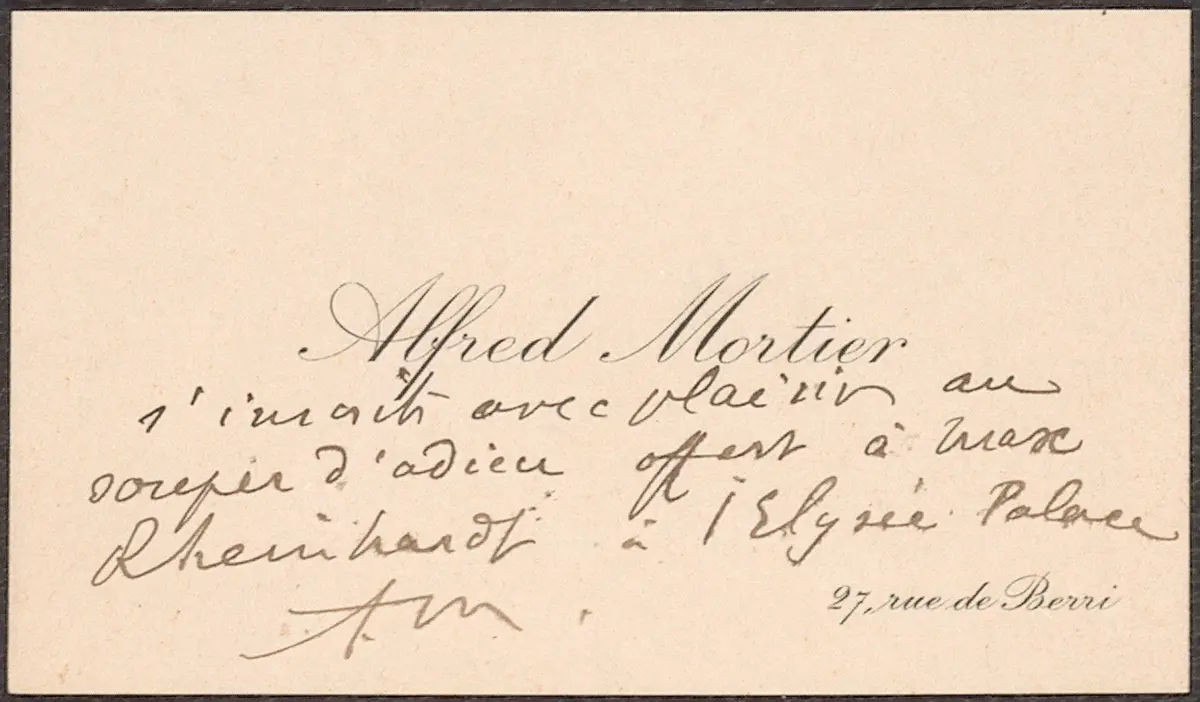 Alfred Mortier
s'inscrit avec plaisir au
souper d'adieu offert à Max
Rheinhardt à l'Elysée Palace
27, rue de Berri
AM.